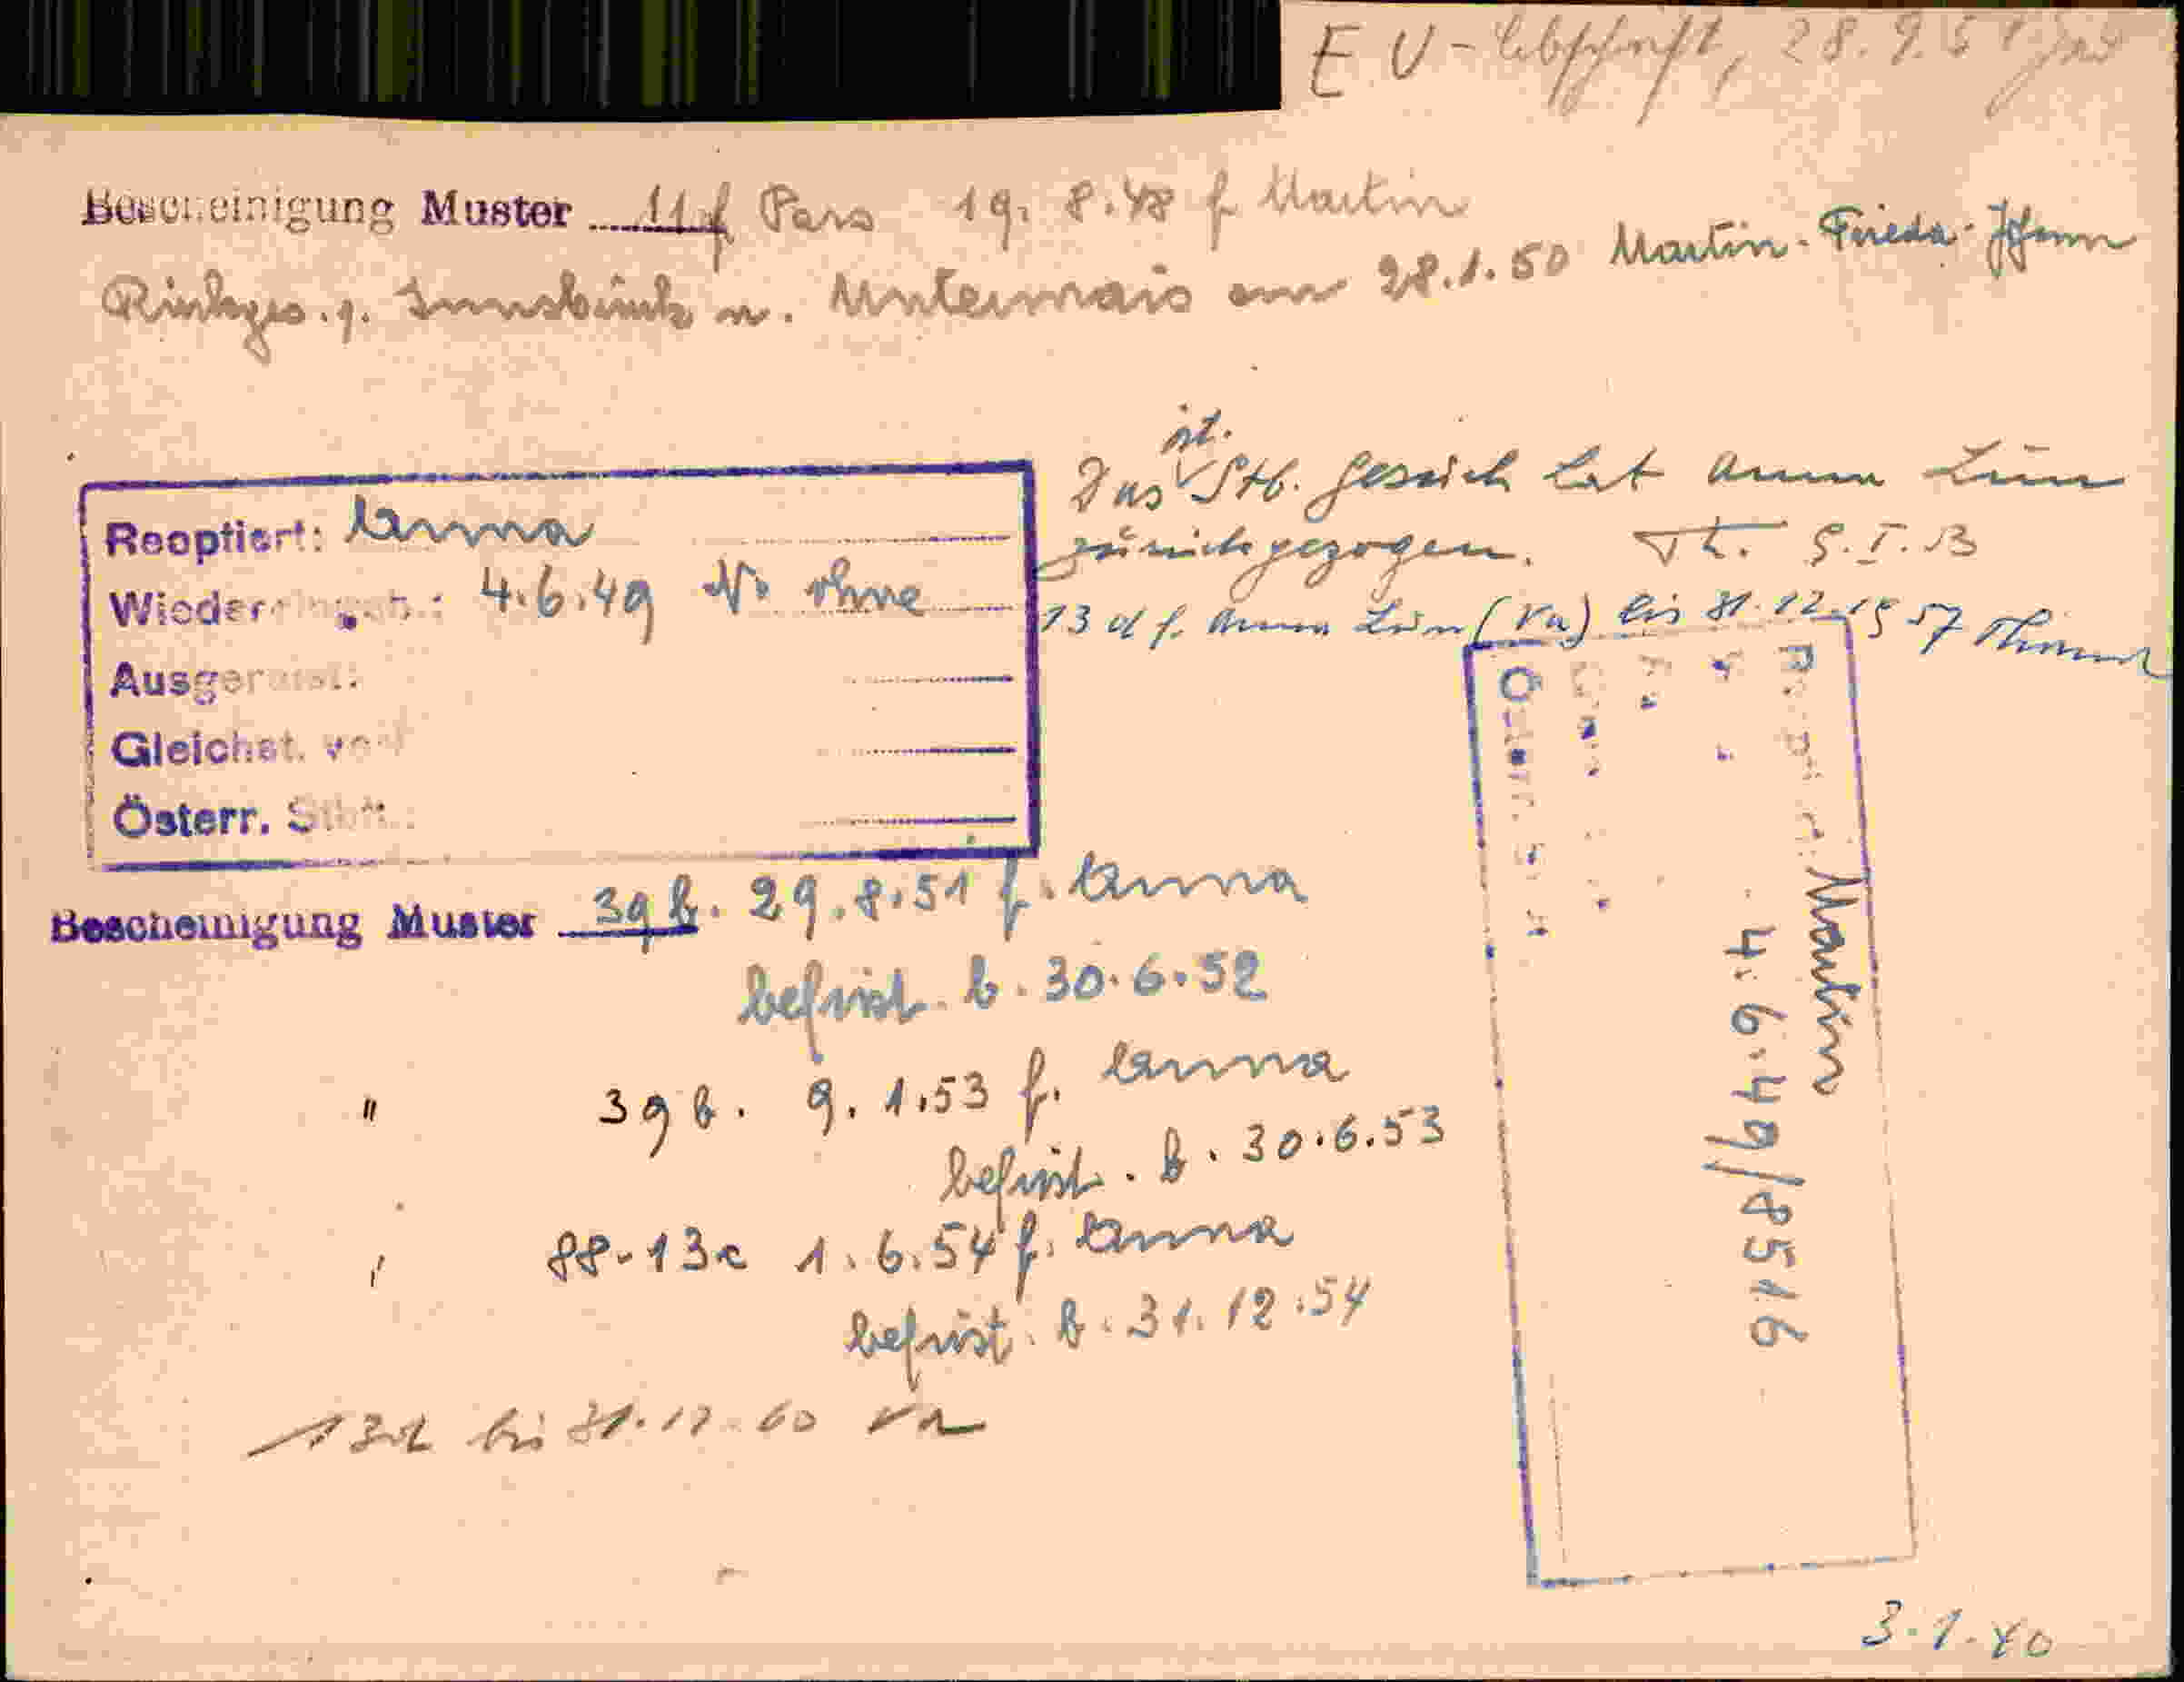 EU-Abschrift, 28.9.51
Bescheinigung Muster 11 f Pass 19.8.48 f Martin
Innsbruck n. Untermais am 28.1.50 Martin - Frieda - Johann
öst.
Das Stb. Gesuch hat Anna
zurückgezogen.
13 d f. Anna (Va) bis 31.12.1957
Reoptiert: Anna
Wiedereingeb.: 4.6.49 No ohne
Ausgereist:
Gleichst. v
Österr. Stb
Martin
4.6.49/8516
Österr. St
Bescheinigung Muster 39 b. 29.8.51 f. Anna
befrist. b. 30.6.52
" 39 b. 9.1.53 f. Anna
befrist. b. 30.6.53
88-13c 1.6.54 f. Anna
befrist. b. 31.12.54
13d bis 31.12.60 Va
3.1.40